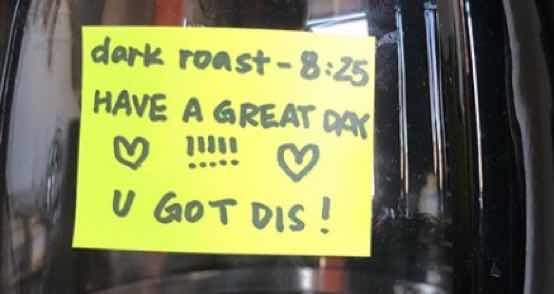 dark roast - 8:25
HAVE A GREAT DAY
♡ !!!!! ♡
U GOT DIS!